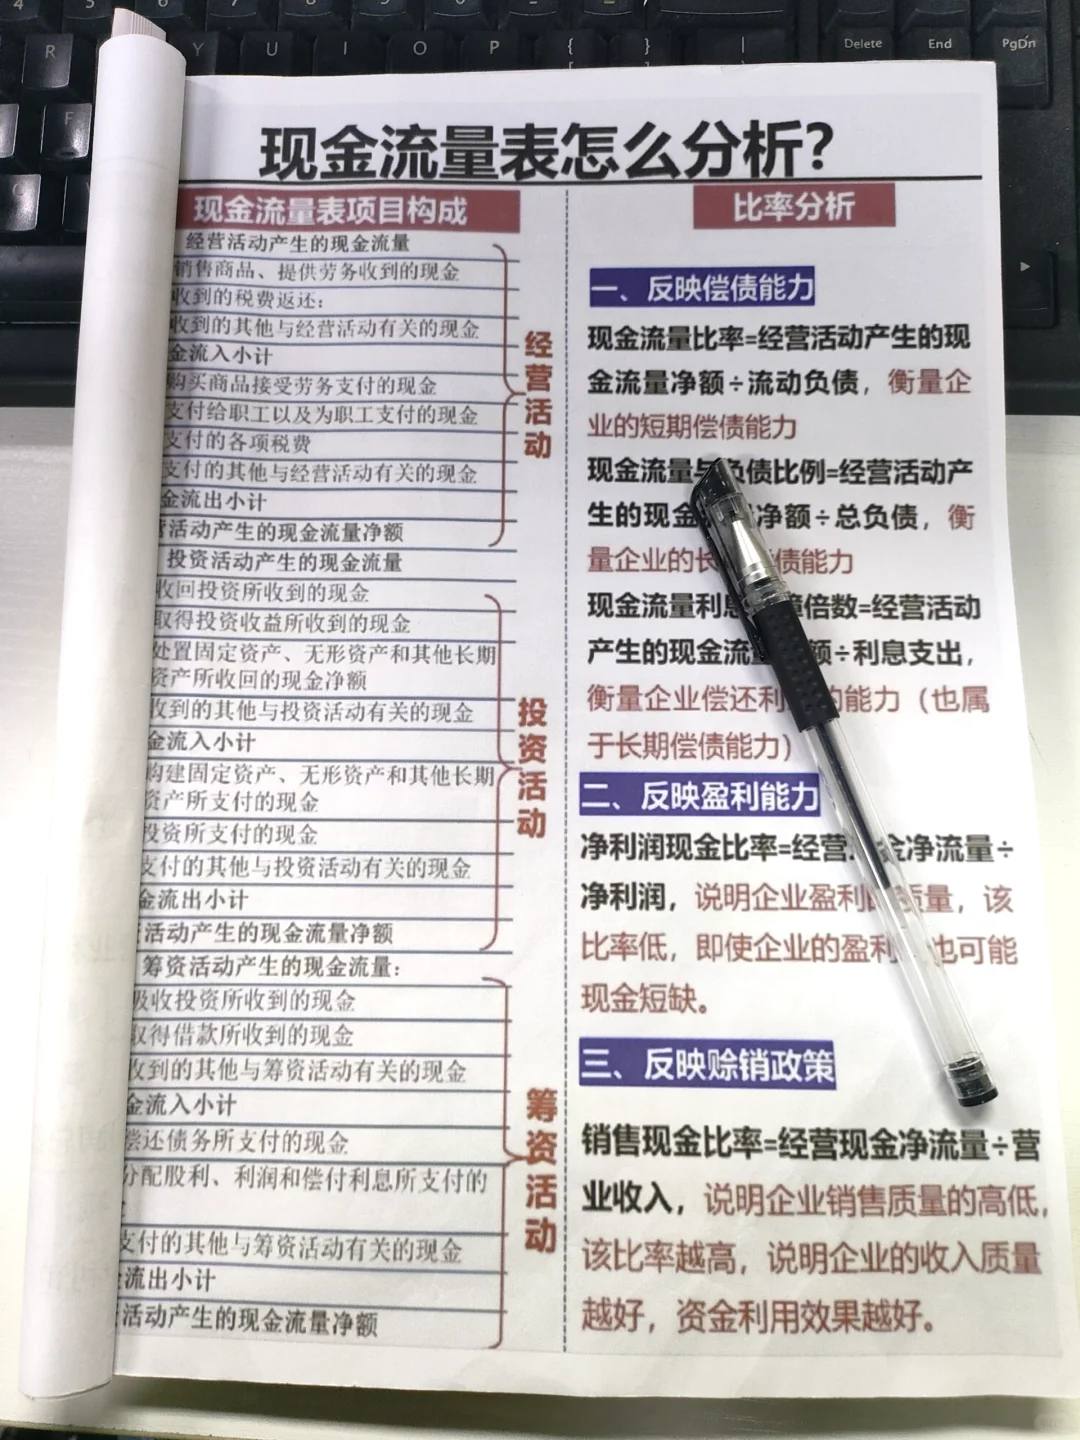 现金流量表怎么分析？
现金流量表项目构成
经营活动产生的现金流量
销售商品、提供劳务收到的现金
收到的税费返还：
收到的其他与经营活动有关的现金
金流入小计
购买商品接受劳务支付的现金
支付给职工以及为职工支付的现金
支付的各项税费
支付的其他与经营活动有关的现金
金流出小计
营活动产生的现金流量净额
经营活动
投资活动产生的现金流量
收回投资所收到的现金
取得投资收益所收到的现金
处置固定资产、无形资产和其他长期
资产所收回的现金净额
收到的其他与投资活动有关的现金
金流入小计
购建固定资产、无形资产和其他长期
资产所支付的现金
投资所支付的现金
支付的其他与投资活动有关的现金
金流出小计
活动产生的现金流量净额
投资活动
筹资活动产生的现金流量：
吸收投资所收到的现金
取得借款所收到的现金
收到的其他与筹资活动有关的现金
金流入小计
偿还债务所支付的现金
分配股利、利润和偿付利息所支付的
支付的其他与筹资活动有关的现金
金流出小计
活动产生的现金流量净额
筹资活动
比率分析
一、反映偿债能力
现金流量比率=经营活动产生的现
金流量净额÷流动负债，衡量企
业的短期偿债能力
现金流量与负债比例=经营活动产
生的现金净额÷总负债，衡
量企业的长债能力
现金流量利息倍数=经营活动
产生的现金流量额÷利息支出，
衡量企业偿还利的能力（也属
于长期偿债能力）
二、反映盈利能力
净利润现金比率=经营金净流量÷
净利润，说明企业盈利质量，该
比率低，即使企业的盈利也可能
现金短缺。
三、反映赊销政策
销售现金比率=经营现金净流量÷营
业收入，说明企业销售质量的高低，
该比率越高，说明企业的收入质量
越好，资金利用效果越好。
R
Y
U
I
O
P
{
[
}
]
|
Delete
End
PgDn
F